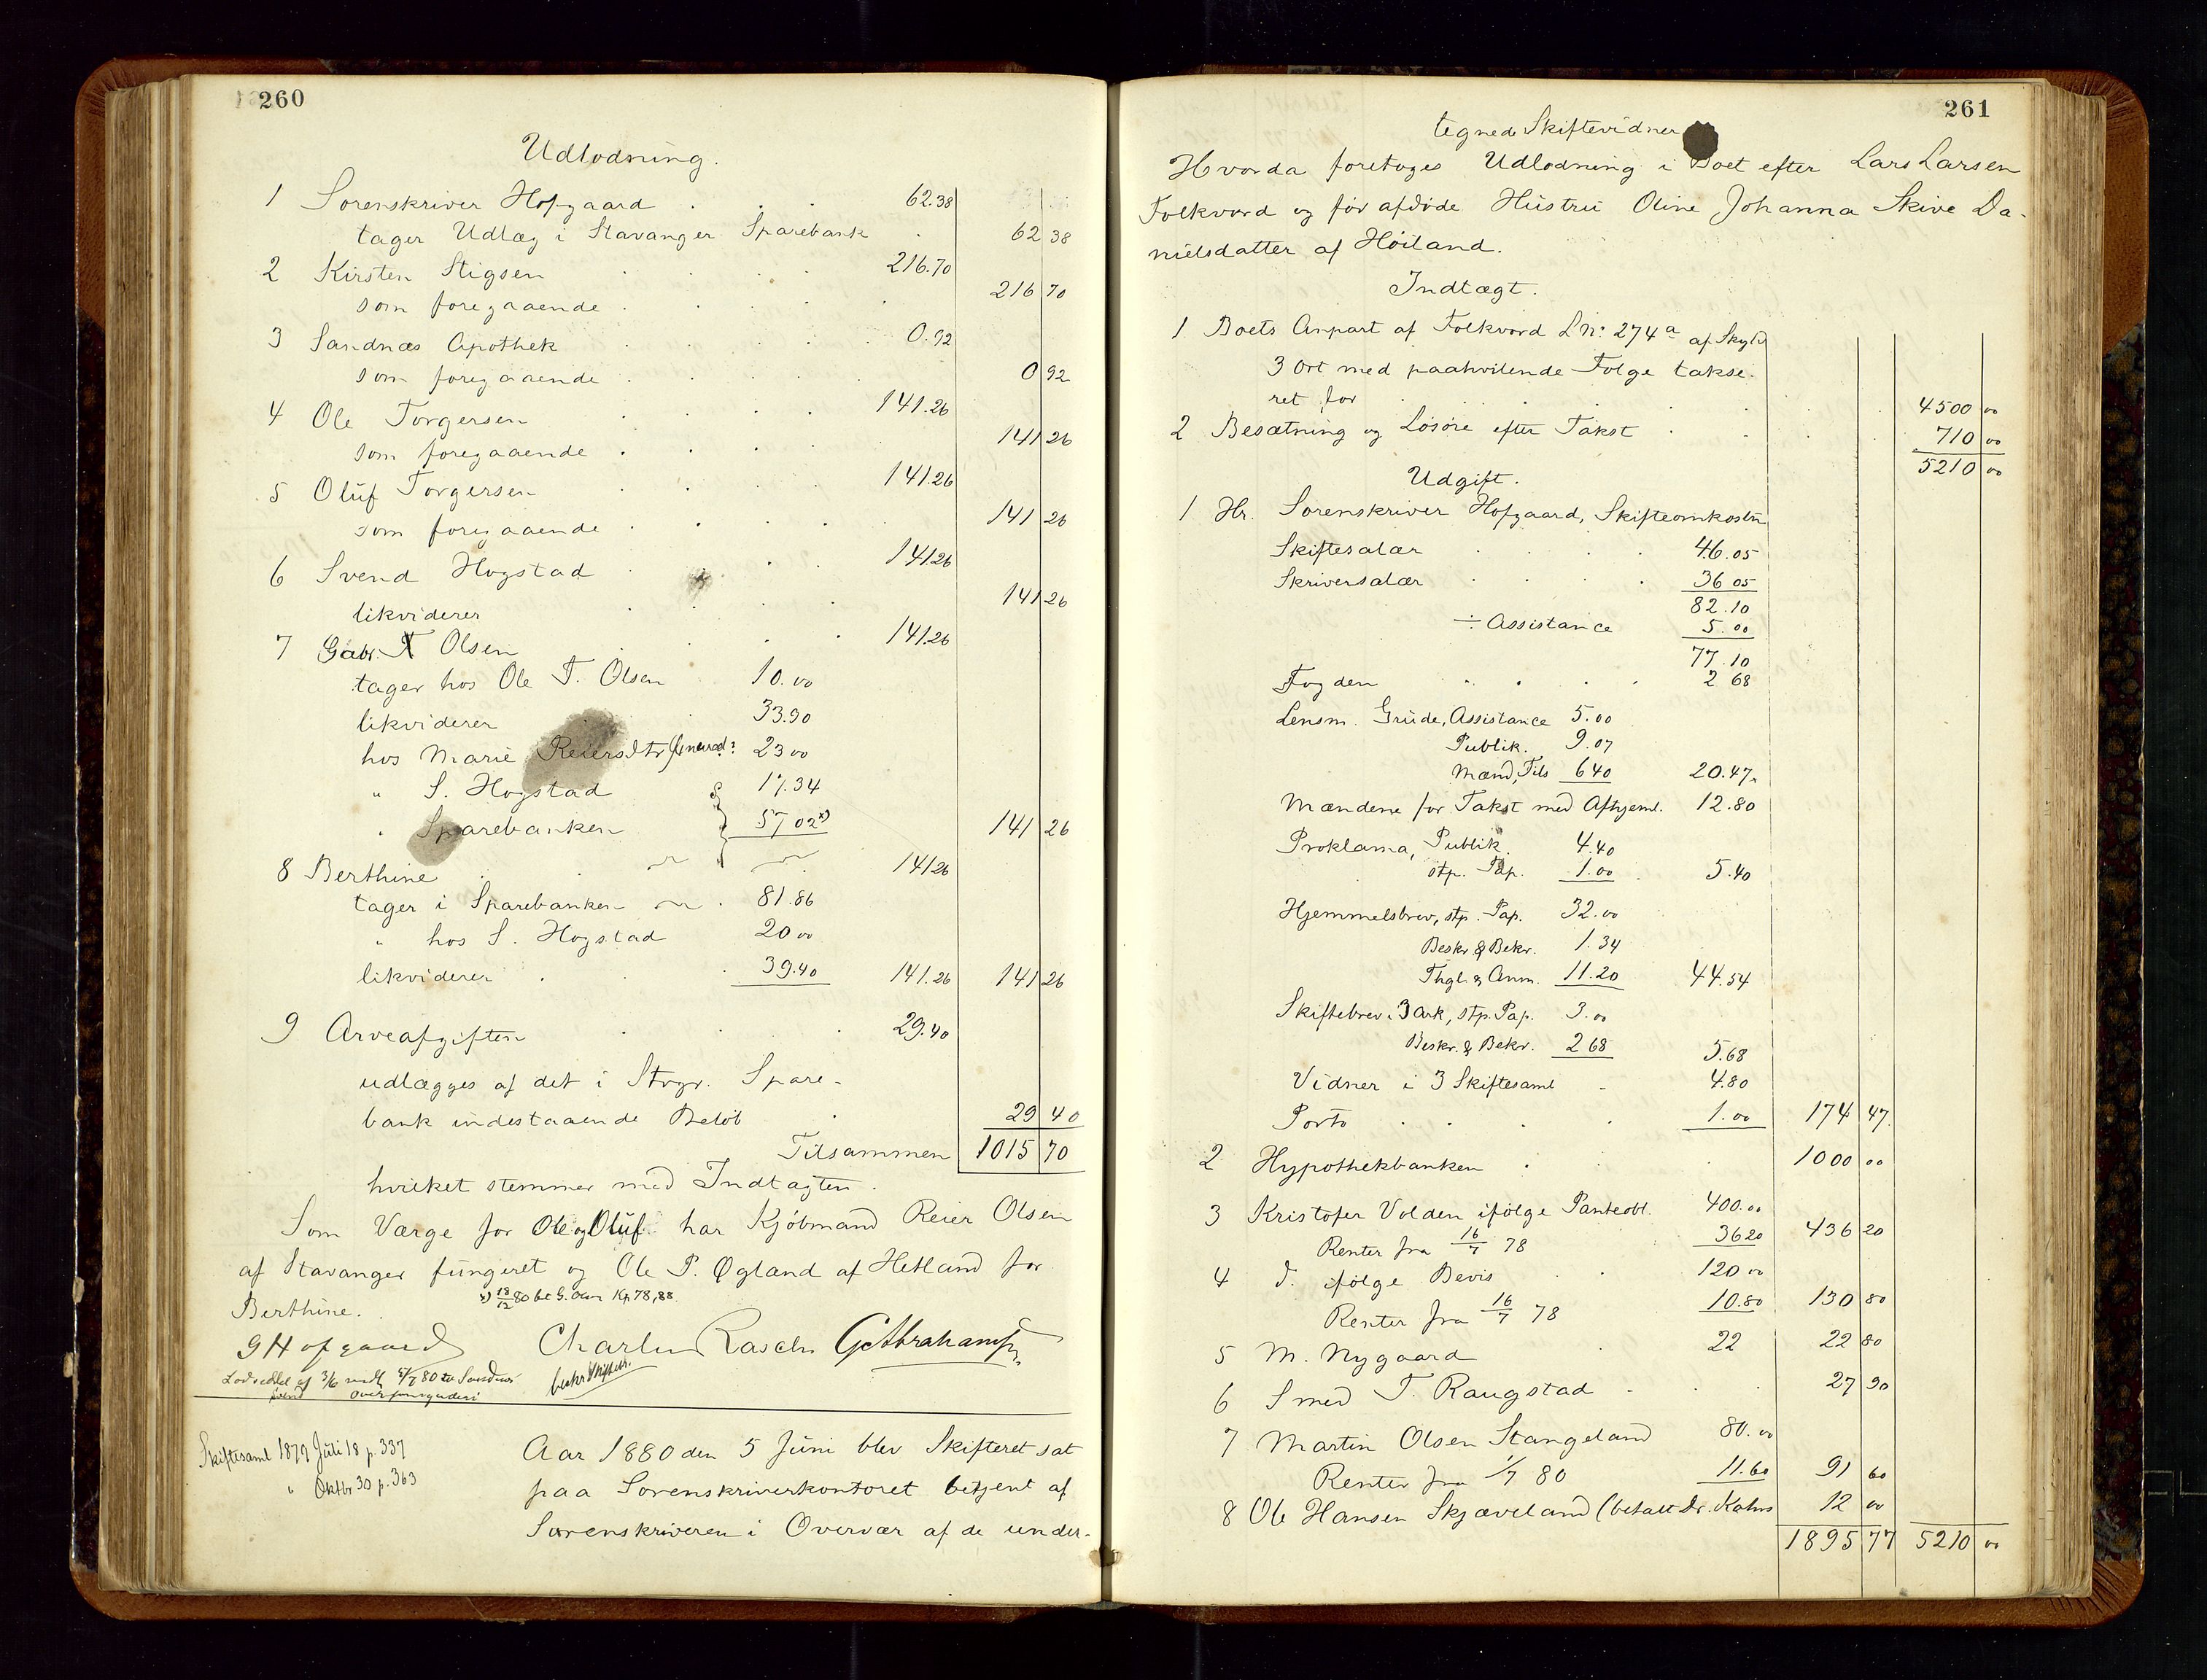 260
Udlodning.
1 Sorenskriver Hofgaard . . . 62.38
tager Udlæg i Stavanger Sparebank . 62 38
2 Kirsten Stigsen . . . . 216.70
som foregaaende . . . 216 70
3 Sandnæs Apothek . . . . 0.92
som foregaaende . . . . 0 92
4 Ole Torgersen . . . . 141.26
som foregaaende . . . 141 26
5 Oluf Torgersen . . . . 141.26
som foregaaende . . . . 141 26
6 Svend Hogstad . . . 141.26
likviderer . . . . 141 26
7 Gabr. T Olsen . . . 141.26
tager hos Ole T. Olsen 10.00
likviderer 33.90
hos Marie Reiersdtr 23 00
" S. Hogstad 17.34
" Sparebanken 57 02 x) 141 26
8 Berthine . . 141 26
tager i Sparebanken . 81.86
" hos S. Hogstad 20 00
likviderer . . 39.40 141.26 141 26
9 Arveafgiften . . . 29.40
udlægges af det i Stvgr. Spare-
bank indestaaende Beløb . 29 40
Tilsammen 1015 70
hvilket stemmer med Indtægten.
Som Værge for Ole og Oluf har Kjøbmand Reier Olsen
af Stavanger fungeret og Ole P. Øgland af Hetland for
Berthine. x) 18/12 80 bet G. Olsen Kr. 78,88.
GHofgaard Charles Rasch G Abrahamsen
Lodseddel af 3/6 5/7 80 to Sandnæs
overformynderi
Skiftesaml 1879 Juli 18 p. 337
" Oktbr 30 p. 363
Aar 1880 den 5 Juni blev Skifteret sat
paa Sorenskriverkontoret betjent af
Sorenskriveren i Overvær af de under-
261
tegnede Skiftevidner
Hvorda foretoges Udlodning i Boet efter Lars Larsen
Folkvord og før afdøde Hustru Oline Johanna Skive Da-
nielsdatter af Høiland.
Indtægt.
1 Boets Anpart af Folkvord L.Nr. 274a af Skyld
3 Ort med paahvilende Følge takse-
ret for . . . . . . 4500 00
2 Besætning og Løsøre efter Takst . . . . 710 00
5210 00
Udgift.
1 Hr. Sorenskriver Hofgaard, Skifteomkostn
Skiftesalær . . . . 46.05
Skriversalær . . . . 36 05
82.10
÷ Assistance 5.00
77.10
Fogden . . . . 2 68
Lensm. Grude, Assistance 5.00
Publik. 9.07
Mænd, Tils 6 40 20.47
Mændene for Takst med Afhjeml. 12.80
Proklama, Publik. 4.40
stp. Pap. 1.00 . 5.40
Hjemmelsbrev, stp. Pap. 32.00
Beskr & Bekr. 1.34
Thgl. & Anm. 11.20 44.54
Skiftebrev, 3 Ark, stp. Pap. 3.00
Beskr. & Bekr. 2 68 5.68
Vidner i 3 Skiftesaml - 4.80
Porto . . . . 1.00 174 47.
2 Hypothekbanken . . . 1000 00
3 Kristofer Volden ifølge Panteobl. 400.00
Renter fra 16/7 78 36 20 436 20
4 d. ifølge Bevis . 120 00
Renter fra 16/7 78 10.80 130 80
5 M. Nygaard . 22 22 80
6 Smed T. Raugstad . . 27 90
7 Martin Olsen Stangeland 80.00
Renter fra 1/7 80 11.60 91 60
8 Ole Hansen Skjæveland (betalt Dr. Kahrs 12 00
1895 77 5210 00